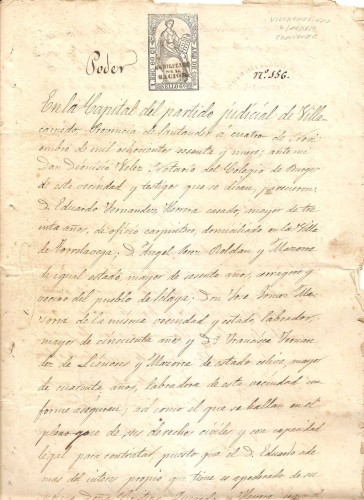 Poder
HABILITADO
POR LA
NACION
nº. 156.
En la Capital del partido judicial de Villa
carriedo, Provincia de Santander a cuatro de Novi
embre de mil ochocientos sesenta y nueve; ante mi
Don Dionisio Velez Notario del Colegio de Burgos
de esta vecindad y testigos que se diran, parecieron
D. Eduardo Fernandez Herrera casado, mayor de tre
inta años, de oficio carpintero, domiciliado en la Villa
de Torrelavega; D. Angel Roldan y Mazorra
de igual estado, mayor de sesenta años,
vecino del pueblo de Selaya; Don José Gomez Ma
zorra de la misma vecindad y estado, labrador,
mayor de cincuenta años y Dª Francisca Fernan
dez de Liencres y Mazorra de estado mayor
de cuarenta años, labradora de esta vecindad con
forme aseguran; asi como el que se hallan en el
pleno goce de sus derechos civiles y con capacidad
legal para contratar, puesto que el D. Eduardo ade
mas del interes propio que tiene es apoderado de su